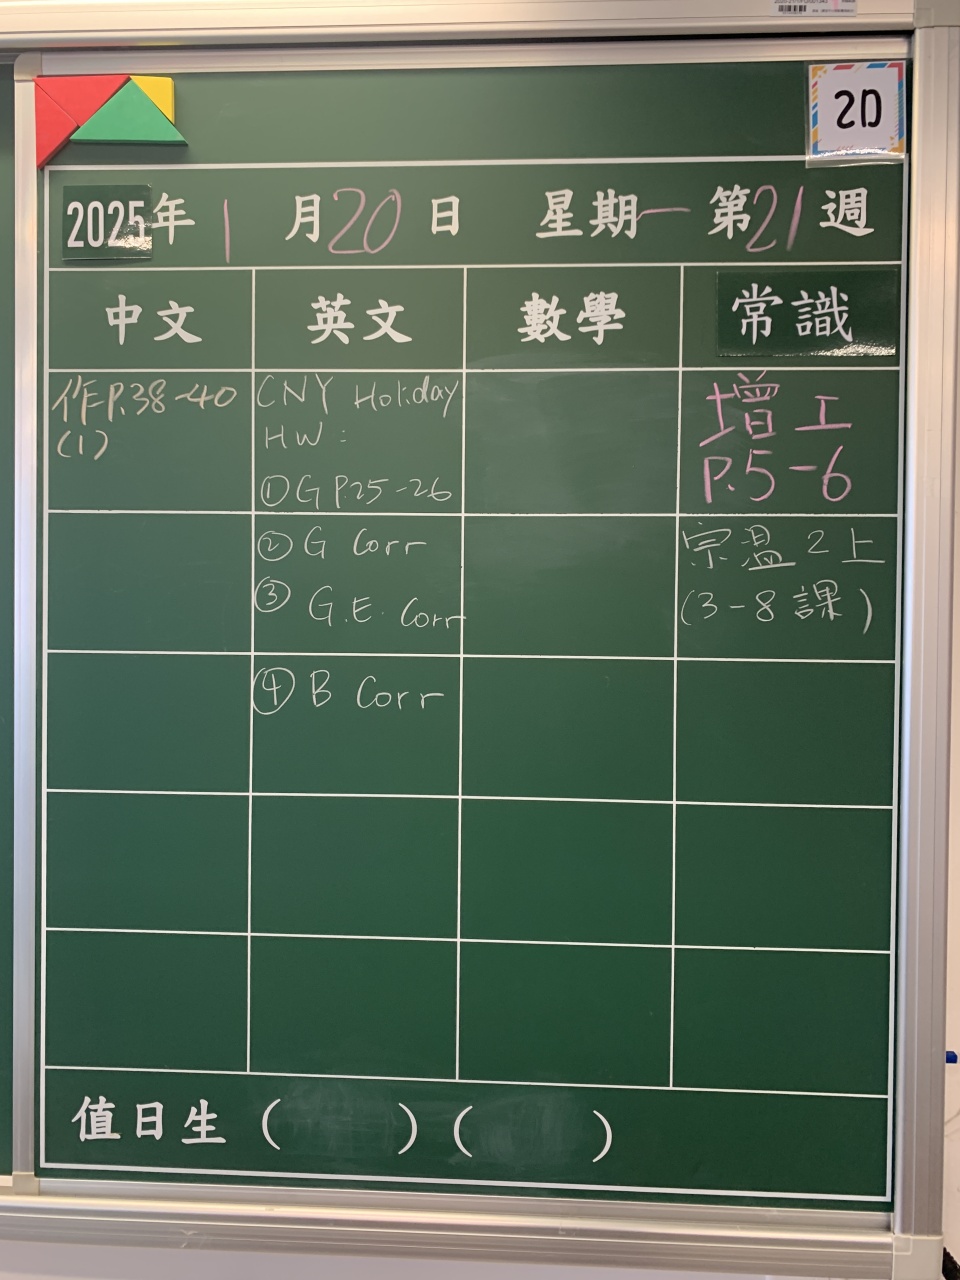 2D
2025年 1月20日 星期一 第21週
中文 英文 數學 常識
作P.38-40
(1)
CNY Holiday
HW:
① G P.25-26
② G Corr
③ G.E. Corr
④ B Corr
增工
P.5-6
宗溫2上
(3-8課)
值日生 ( ) ( )